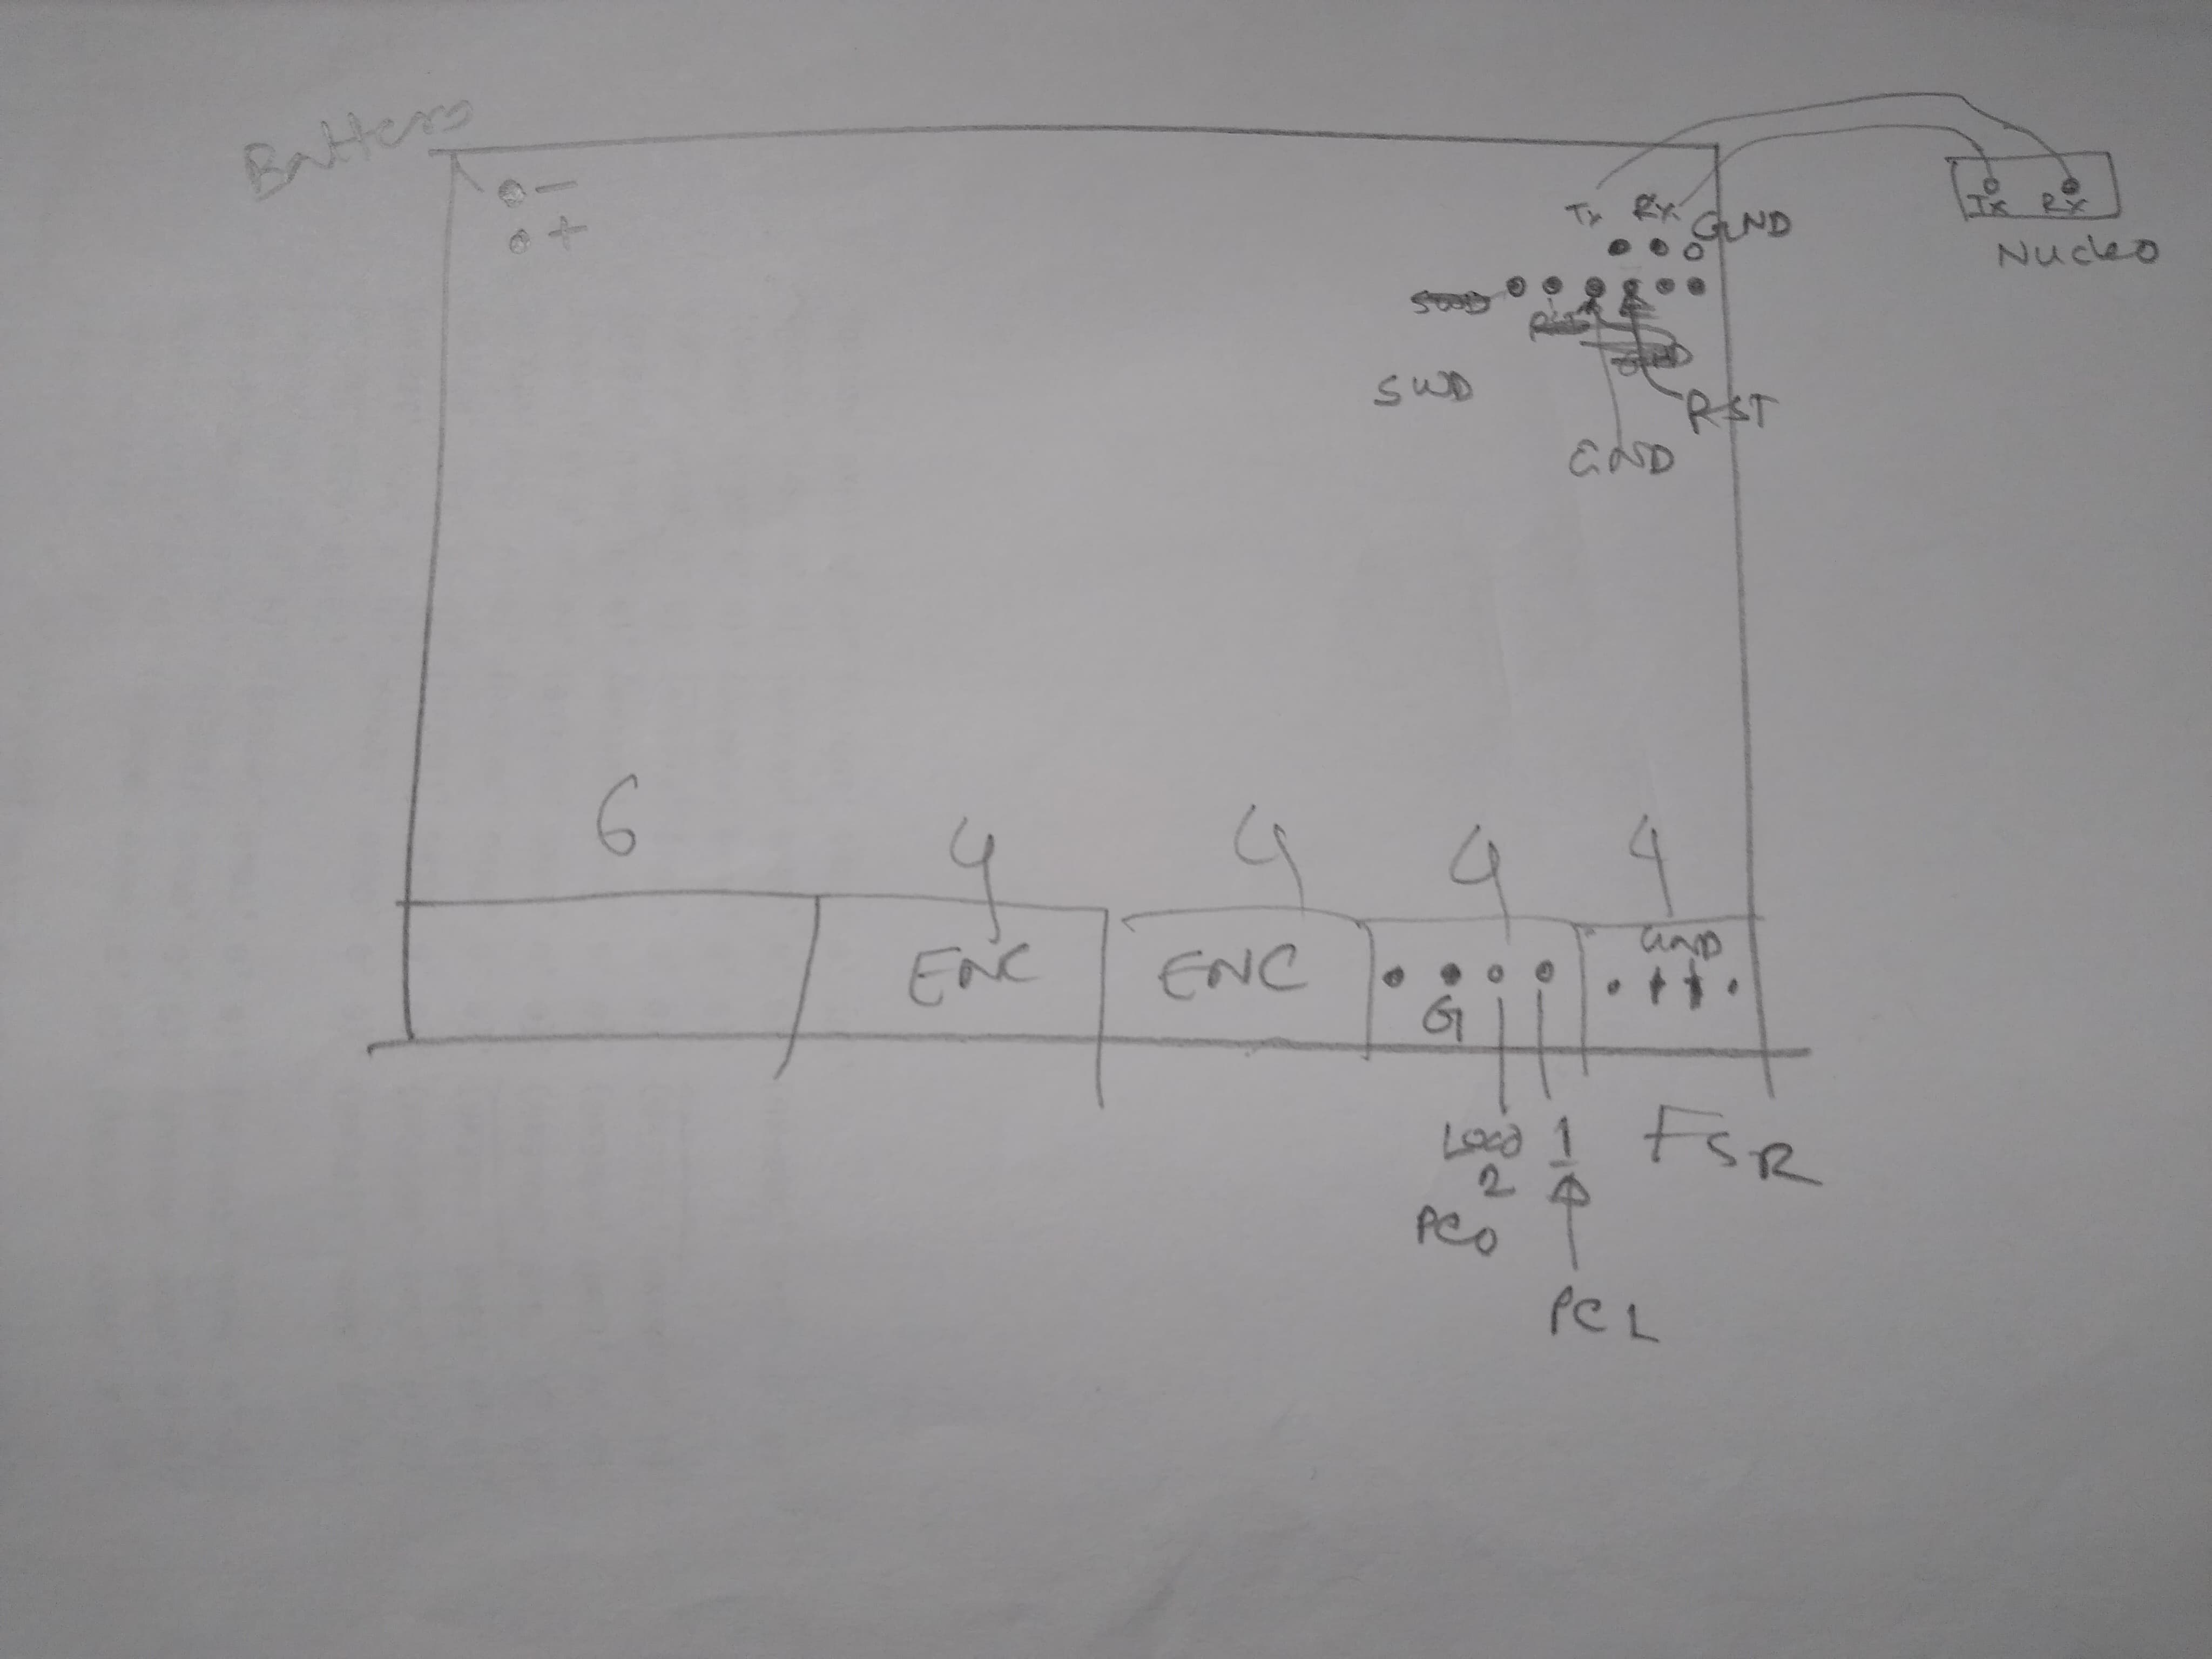 Battery
−
+
Tx Rx GND
Tx Rx
Nucleo
SWD
RST
GND
6 4 4 4 4
ENC ENC GND
G
Load 1 FSR
2
PC0
PC1